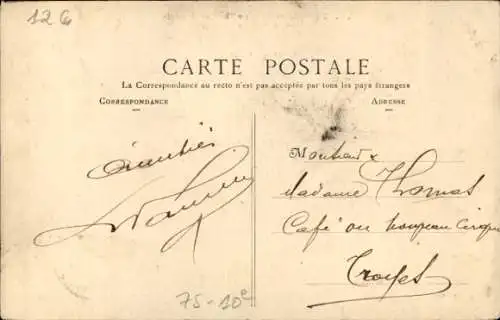 12 6
CARTE POSTALE
La Correspondance au recto n'est pas acceptée par tous les pays étrangers
CORRESPONDANCE
ADRESSE
Amitiés
Monsieur
Madame Thomas
Café du nouveau Cirque
Troyes
75-10e